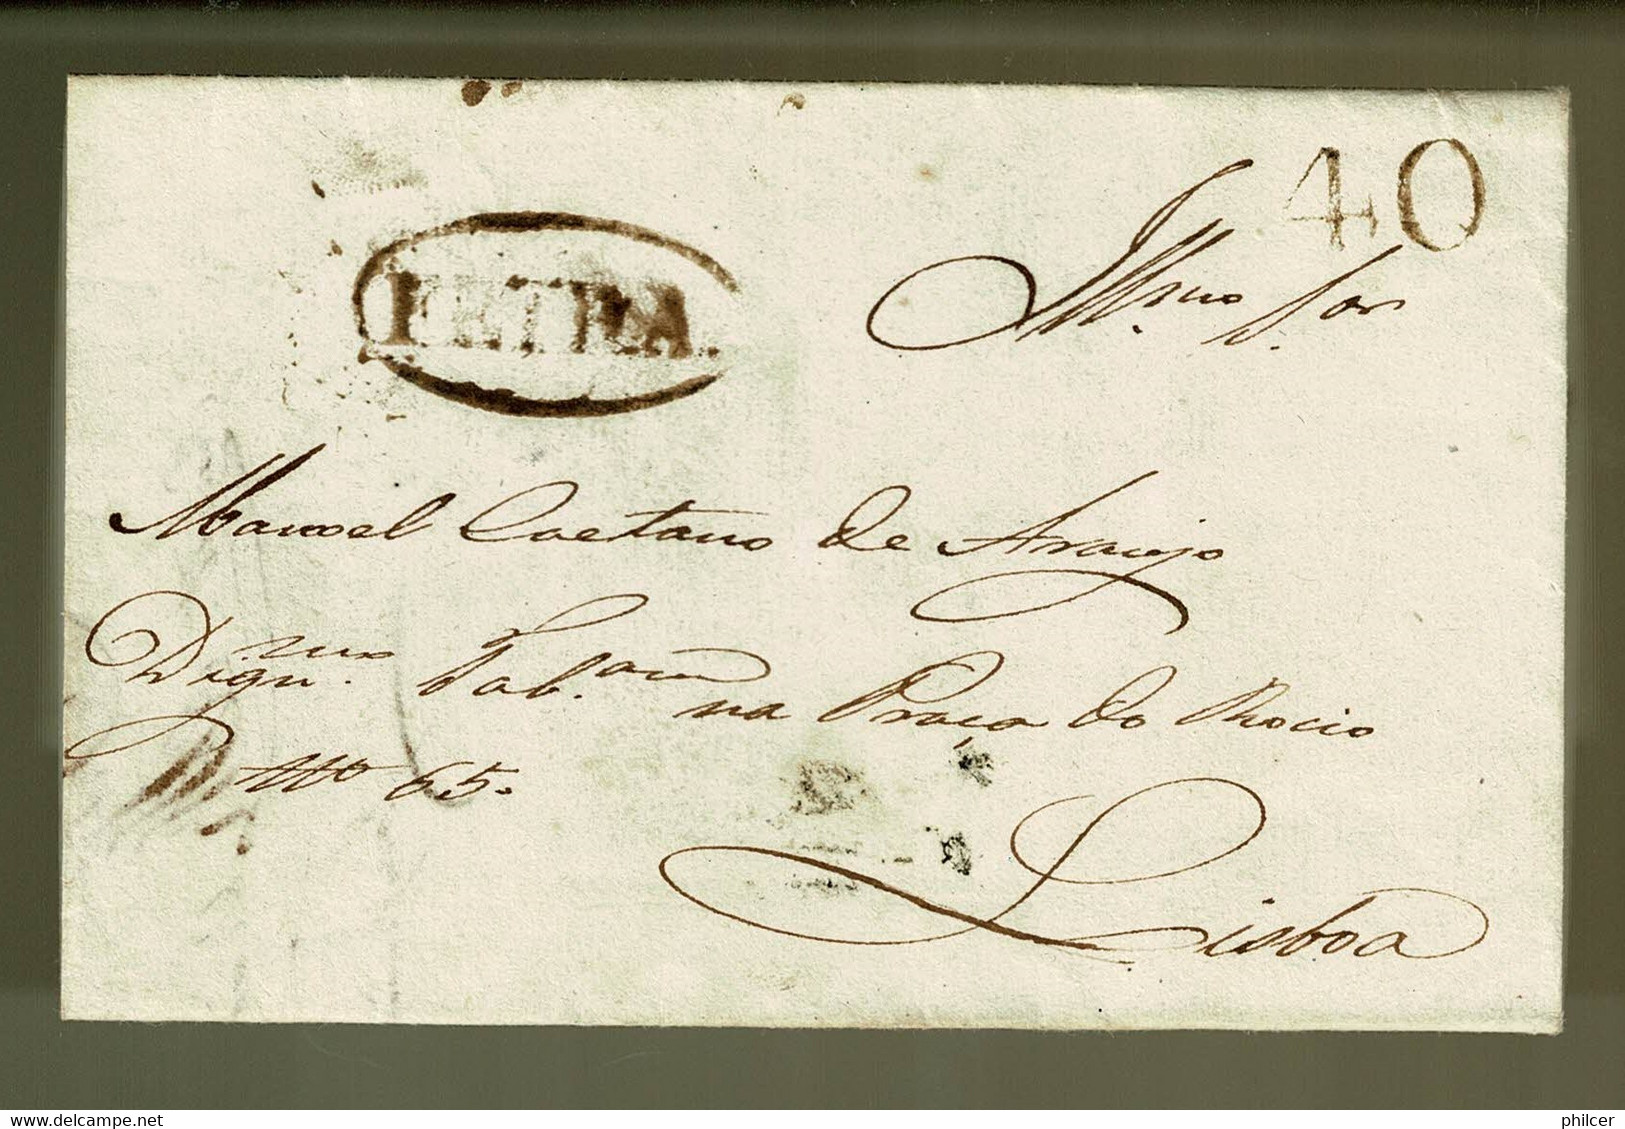 40
Illmo Snr
Manoel Caetano de Araujo
Dignmo. Tab.am na Praça do Rocio
No 65.
Lisboa
delcampe.net
philcer